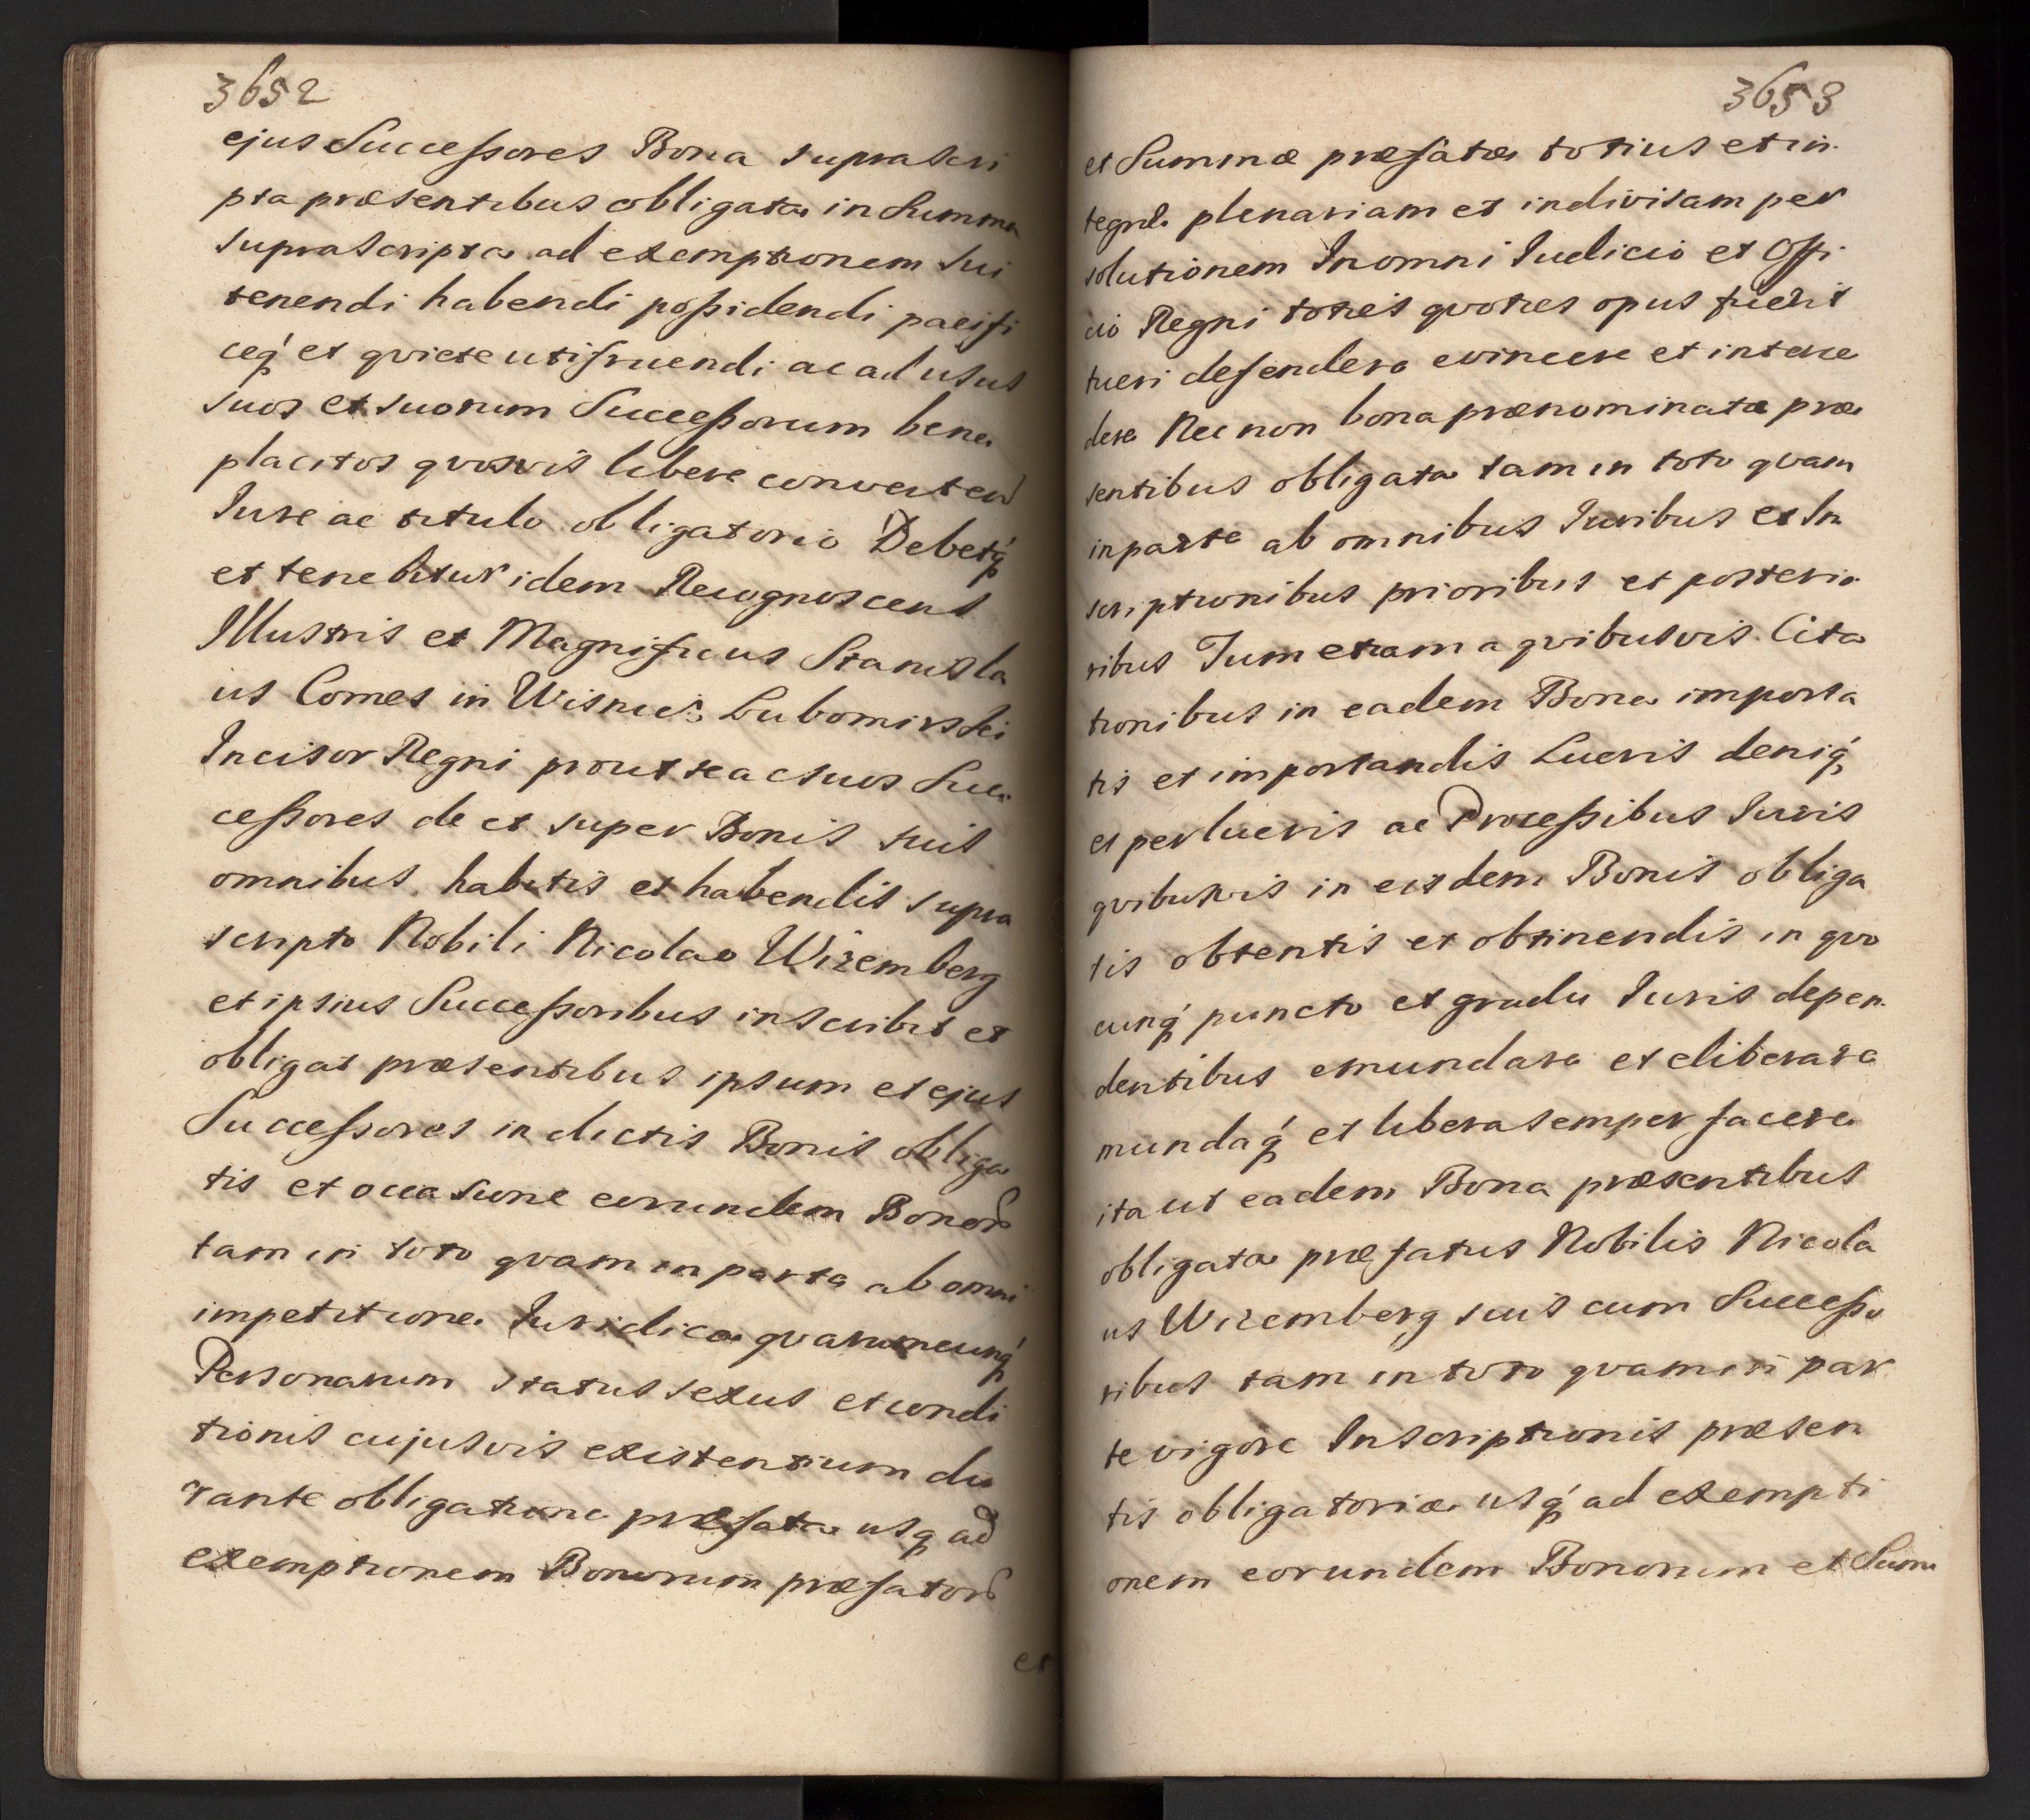 3652
ejus Successores Bona suprascri
pta præsentibus obligata in Summa
suprascripta ad exemptionem sui
tenendi habendi possidendi pacifi
ceq́ et qviete utifruendi ac ad usus
suos et suorum Successorum bene
placitos qvosvis libere convertend
Iure ac titulo obligatorio Debetq́
et tenebitur idem Recognoscens
Illustris et Magnificus Stanisla
us Comes in Wisnic: Lubomirski
Incisor Regni prout se ac suos Suc
cessores de et super Bonis suis
omnibus habitis et habendis supra
scripto Nobili Nicolao Wizemberg
et ipsius Successoribus inscribit et
obligat præsentibus ipsum et ejus
Successores in dictis Bonis obliga
tis et occasione eorundem Bonor
tam in toto qvam in parte ab omni
impetitione Iuridica qvarumcunq́
Personarum status sexus et condi
tionis cujusvis existentium du
rante obligatione præfata usq ad
exemptionem Bonorum præfator
et
3653
et Summæ præfatæ totius et in
tegræ plenariam et indivisam per
solutionem In omni Iudicio et Offi
cio Regni toties qvoties opus fuerit
tueri defendere evincere et interce
dere Nec non bona prænominata præ
sentibus obligata tam in toto qvam
in parte ab omnibus Iuribus et In
scriptionibus prioribus et posterio
ribus Tum etiam a qvibusvis Cita
tionibus in eadem Bona importa
tis et importandis Lucris deniq́
et perlucris ac Processibus Iuris
qvibusvis in eisdem Bonis obliga
tis obtentis et obtinendis in qvo
cunq́ puncto et gradu Iuris depen
dentibus emundare et eliberare
mundaq́ et libera semper facere
ita ut eadem Bona præsentibus
obligata præfatus Nobilis Nicola
us Wizemberg suis cum Successo
ribus tam in toto qvam in par
te vigore Inscriptionis præsen
tis obligatoriæ usq́ ad exempti
onem eorundem Bonorum et Sum